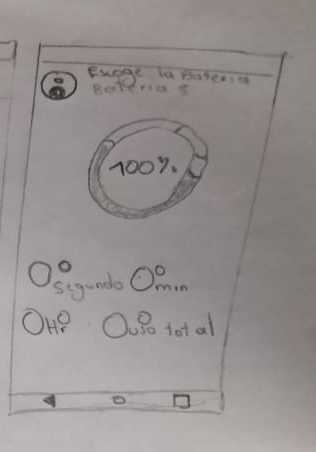 Escoge la Bateria
Bateria 5
100%
0° segundo 0° min
0 Hr 0 uso total